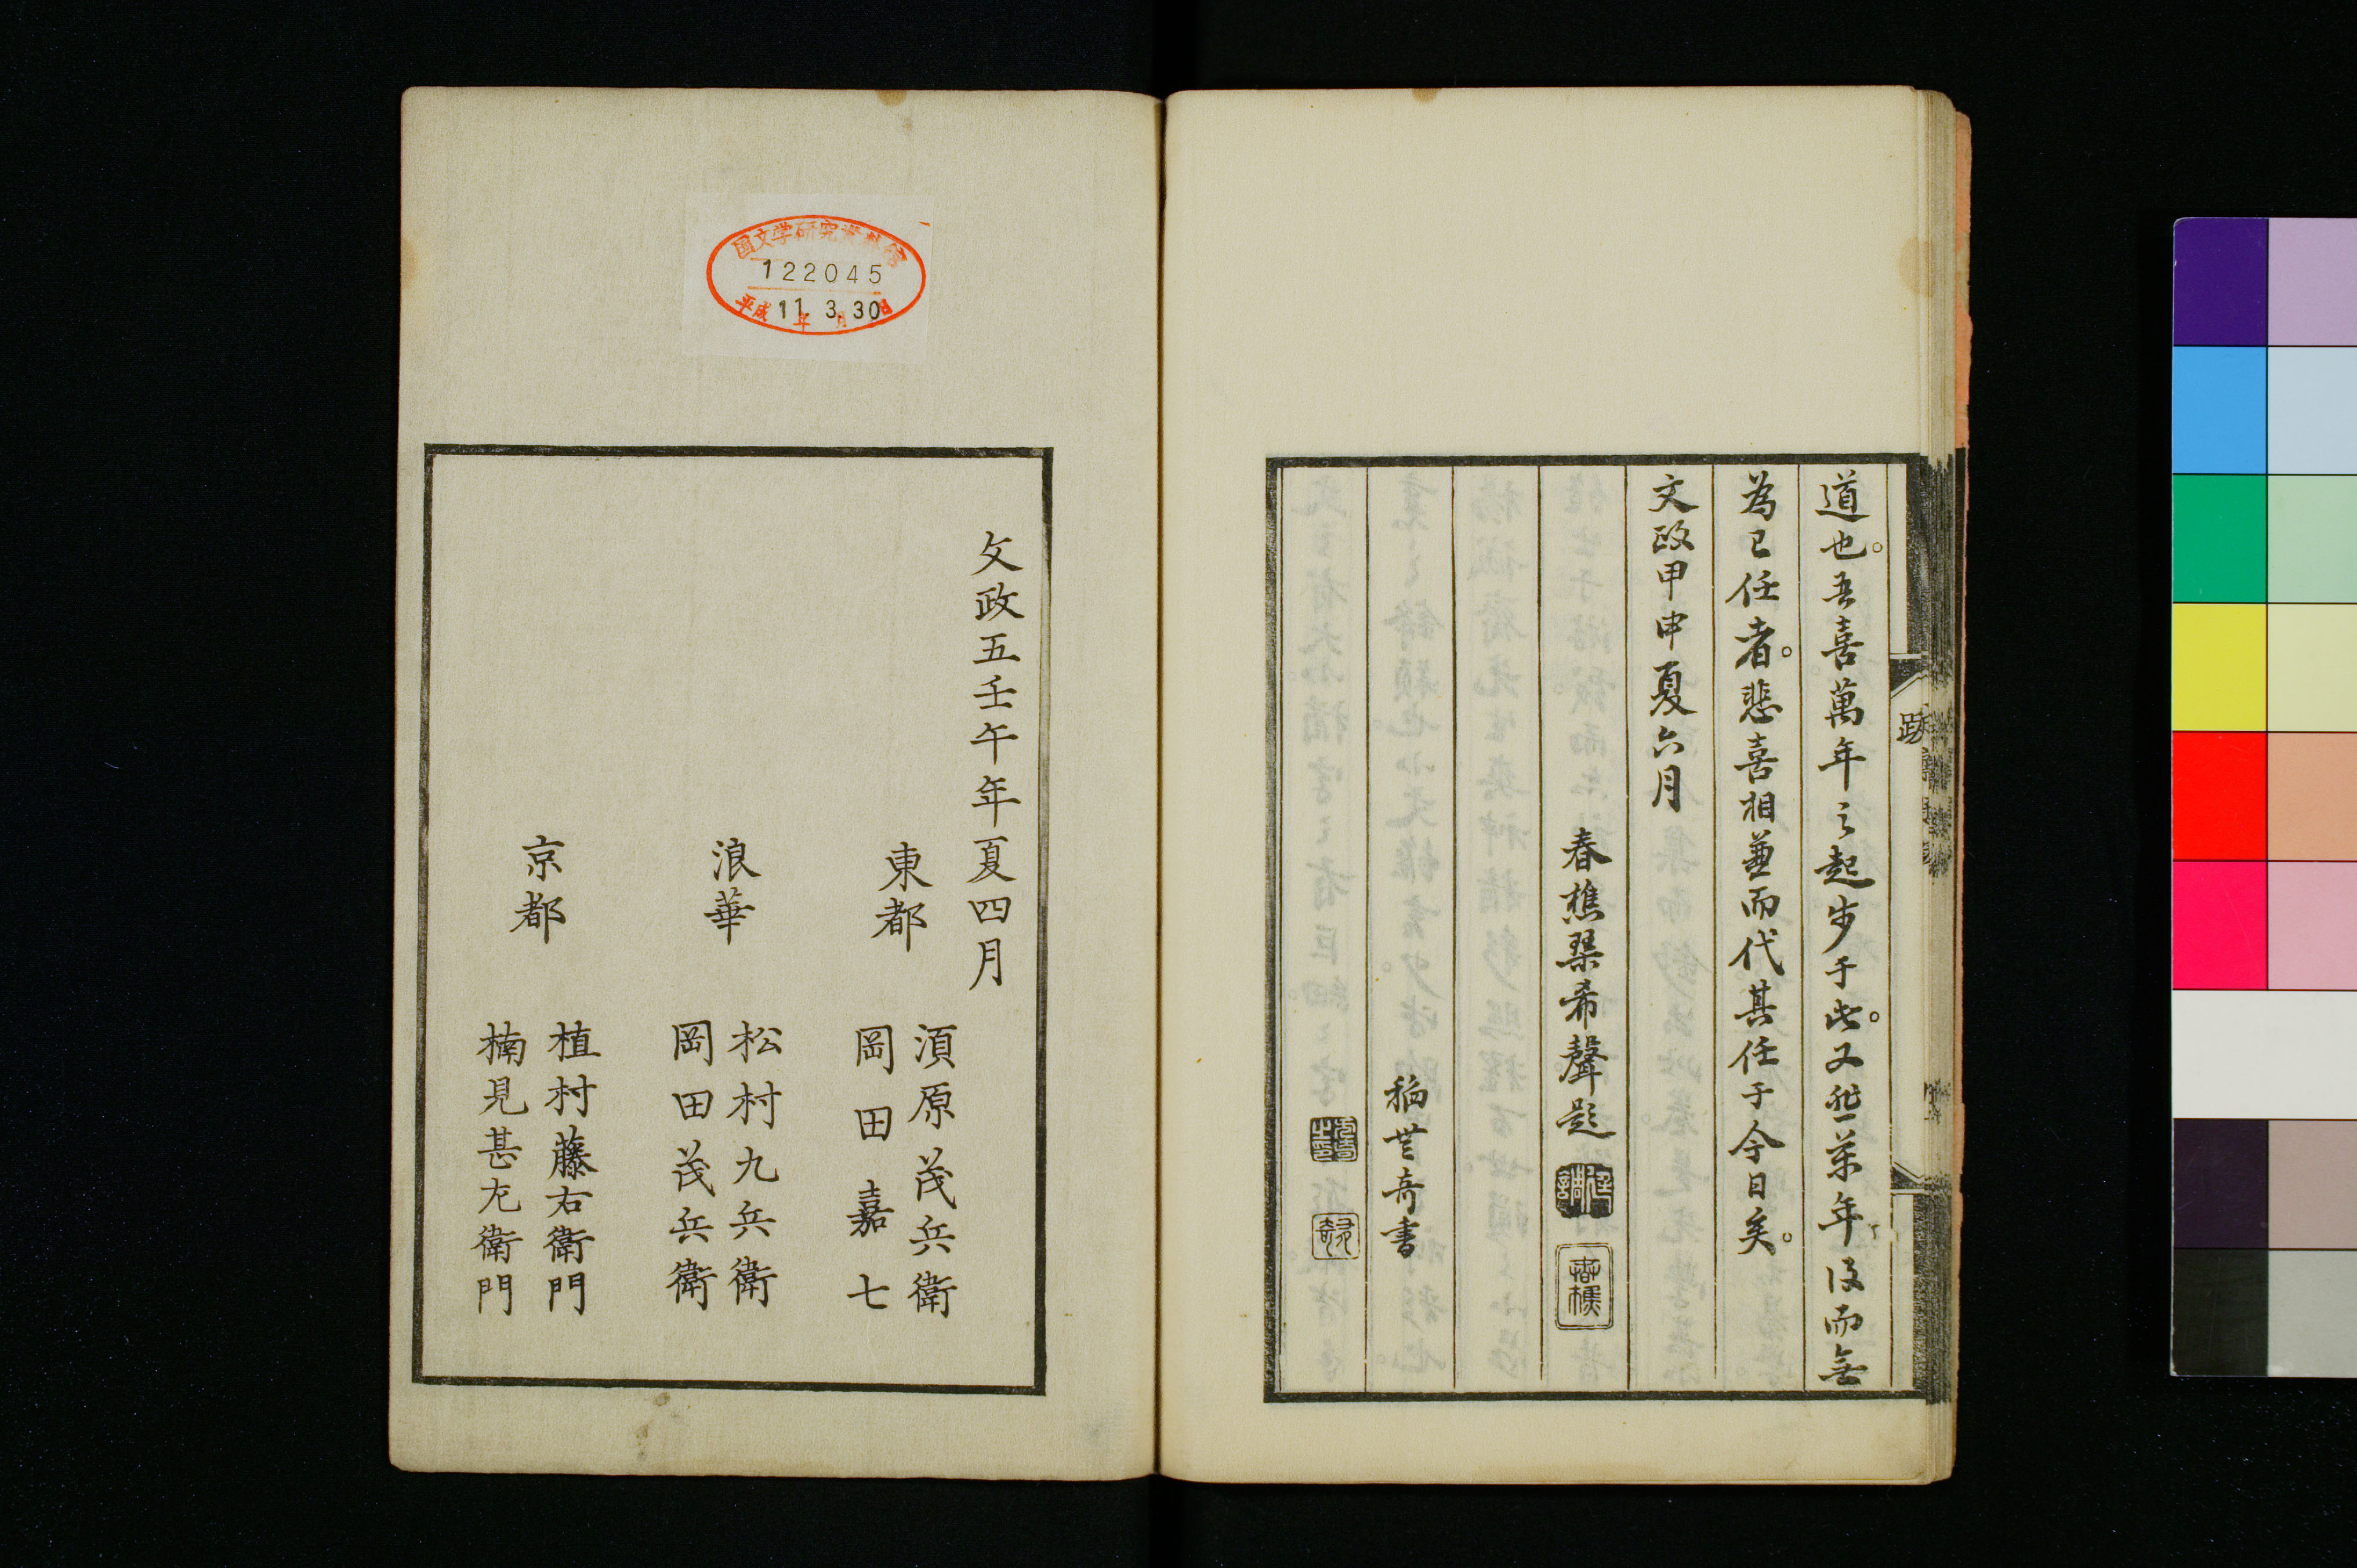 道也。吾喜萬年之起步于此。又悲萊年没而無
為己任者。悲喜相兼而代其任于今日矣。
文政甲申夏六月
春樵琹希聲題
春樵
稲世奇書
跋
文政五壬午年夏四月
東都
須原茂兵衛
岡田嘉七
浪華
松村九兵衛
岡田茂兵衛
京都
植村藤右衛門
楠見甚左衛門
国文学研究資料館
122045
平成11年3月30日